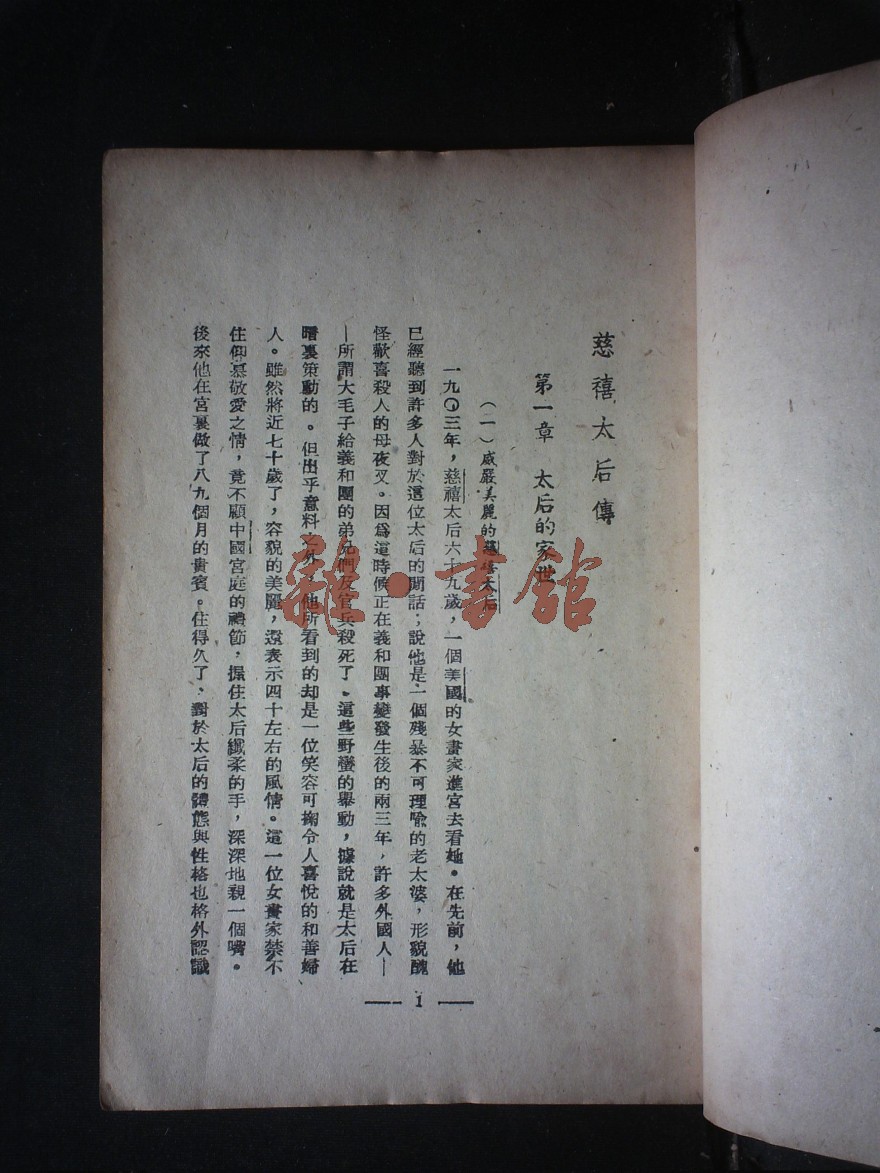 慈禧太后傳
第一章 太后的家世
(一)威嚴美麗的慈禧太后
一九〇三年，慈禧太后六十九歲，一個美國的女畫家進宮去看她。在先前，他
已經聽到許多人對於這位太后的閒話；說他是一個殘暴不可理喻的老太婆，形貌醜
怪歡喜殺人的母夜叉。因爲這時候正在義和團事變發生後的兩三年，許多外國人—
—所謂大毛子給義和團的弟兄們及官兵殺死了。這些野蠻的舉動，據說就是太后在
暗裏策動的。但出乎意料之外，他所看到的却是一位笑容可掬令人喜悅的和善婦
人。雖然將近七十歲了，容貌的美麗，還表示四十左右的風情。這一位女畫家禁不
住仰慕敬愛之情，竟不顧中國宮庭的禮節，握住太后纖柔的手，深深地親一個嘴。
後來他在宮裏做了八九個月的貴賓。住得久了、對於太后的體態與性格也格外認識
— 1 —
雜·書館